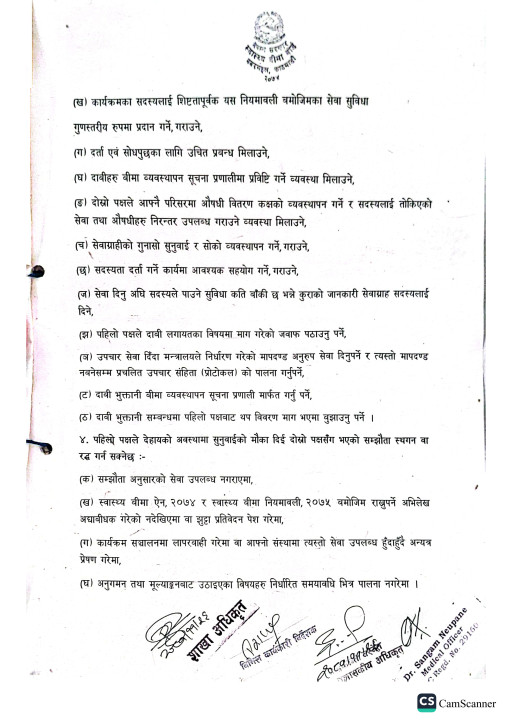 नेपाल सरकार
स्वास्थ्य बीमा बोर्ड
२०७४
(ख) कार्यक्रमका सदस्यलाई शिष्टतापूर्वक यस नियमावली बमोजिमका सेवा सुविधा
गुणस्तरीय रुपमा प्रदान गर्ने, गराउने,
(ग) दर्ता एवं सोधपुछका लागि उचित प्रवन्ध मिलाउने,
(घ) दावीहरु बीमा व्यवस्थापन सूचना प्रणालीमा प्रविष्टि गर्ने व्यवस्था मिलाउने,
(ङ) दोस्रो पक्षले आफ्नै परिसरमा औषधी वितरण कक्षको व्यवस्थापन गर्ने र सदस्यलाई तोकिएको
सेवा तथा औषधीहरु निरन्तर उपलब्ध गराउने व्यवस्था मिलाउने,
(च) सेवाग्राहीको गुनासो सुनुवाई र सोको व्यवस्थापन गर्ने, गराउने,
(छ) सदस्यता दर्ता गर्ने कार्यमा आवश्यक सहयोग गर्ने, गराउने,
(ज) सेवा दिनु अघि सदस्यले पाउने सुविधा कति बाँकी छ भन्ने कुराको जानकारी सेवाग्राह सदस्यलाई
दिने,
(झ) पहिलो पक्षले दावी लगायतका विषयमा माग गरेको जवाफ पठाउनु पर्ने,
(ञ) उपचार सेवा दिँदा मन्त्रालयले निर्धारण गरेको मापदण्ड अनुरुप सेवा दिनुपर्ने र त्यस्तो मापदण्ड
नवनेसम्म प्रचलित उपचार संहिता (प्रोटोकल) को पालना गर्नुपर्ने,
(ट) दावी भुक्तानी बीमा व्यवस्थापन सूचना प्रणाली मार्फत गर्नु पर्ने,
(ठ) दावी भुक्तानी सम्वन्धमा पहिलो पक्षबाट थप विवरण माग भएमा वुझाउनु पर्ने ।
४. पहिलो पक्षले देहायको अवस्थामा सुनुवाईको मौका दिई दोस्रो पक्षसँग भएको सम्झौता स्थगन वा
रद्ध गर्न सक्नेछ :-
(क) सम्झौता अनुसारको सेवा उपलब्ध नगराएमा,
(ख) स्वास्थ्य बीमा ऐन, २०७४ र स्वास्थ्य बीमा नियमावली, २०७५ बमोजिम राख्नुपर्ने अभिलेख
अद्यावधिक गरेको नदेखिएमा वा झुट्टा प्रतिवेदन पेश गरेमा,
(ग) कार्यक्रम सञ्चालनमा लापरवाही गरेमा वा आफ्नो संस्थामा त्यस्तो सेवा उपलब्ध हुँदाहुँदै अन्यत्र
प्रेषण गरेमा,
(घ) अनुगमन तथा मूल्याङ्कनबाट उठाइएका विषयहरु निर्धारित समयावधि भित्र पालना नगरेमा ।
शाखा अधिकृत
कार्यकारी निर्देशक
अधिकृत
Dr. Sangam Neupane
Medical Officer
Regd. No. 29160
CS CamScanner